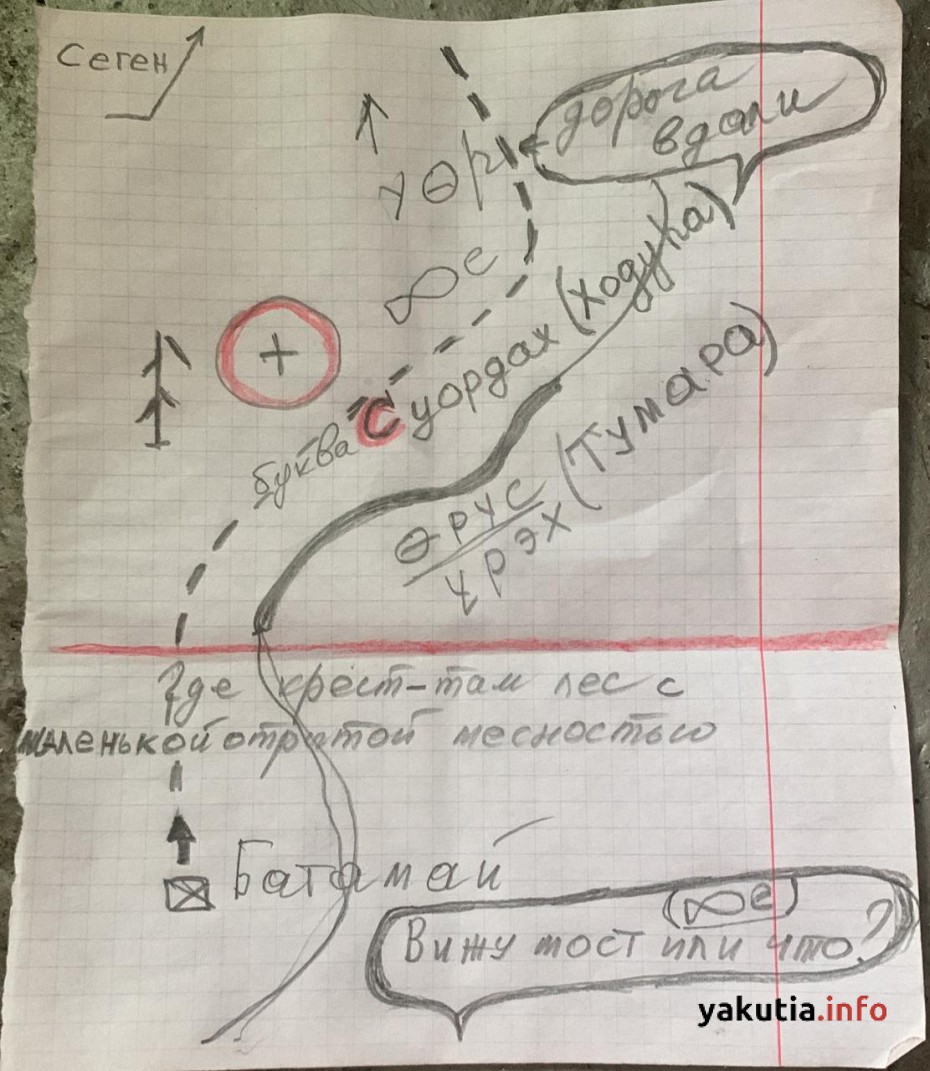 Сеген
дорога
вдали
үөр
∞е
Суордах (Ходука)
буква
өрүс
үрэх
(Тумара)
Где крест-там лес с
маленькой отрытой месностью
Батамай
(∞е)
Вижу мост или что?
yakutia.info